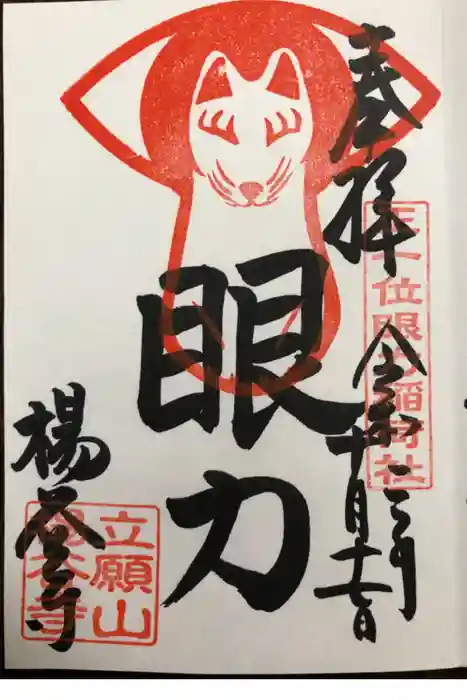 奉拝
正一位眼力稲荷社
令和二年
十月十七日
眼力
楊谷寺
立願山
楊谷寺